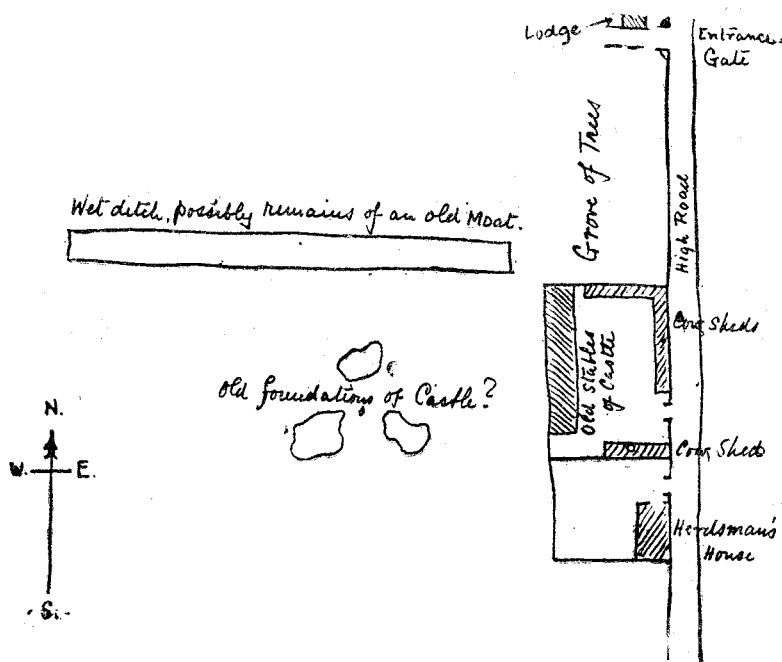 Lodge
Entrance
Gate
Grove of Trees
High Road
Wet ditch, possibly remains of an old Moat.
Cow Sheds
Old Stables
of Castle
Old foundations of Castle?
N.
W. E.
S.
Cow Sheds
Herdsman's
House